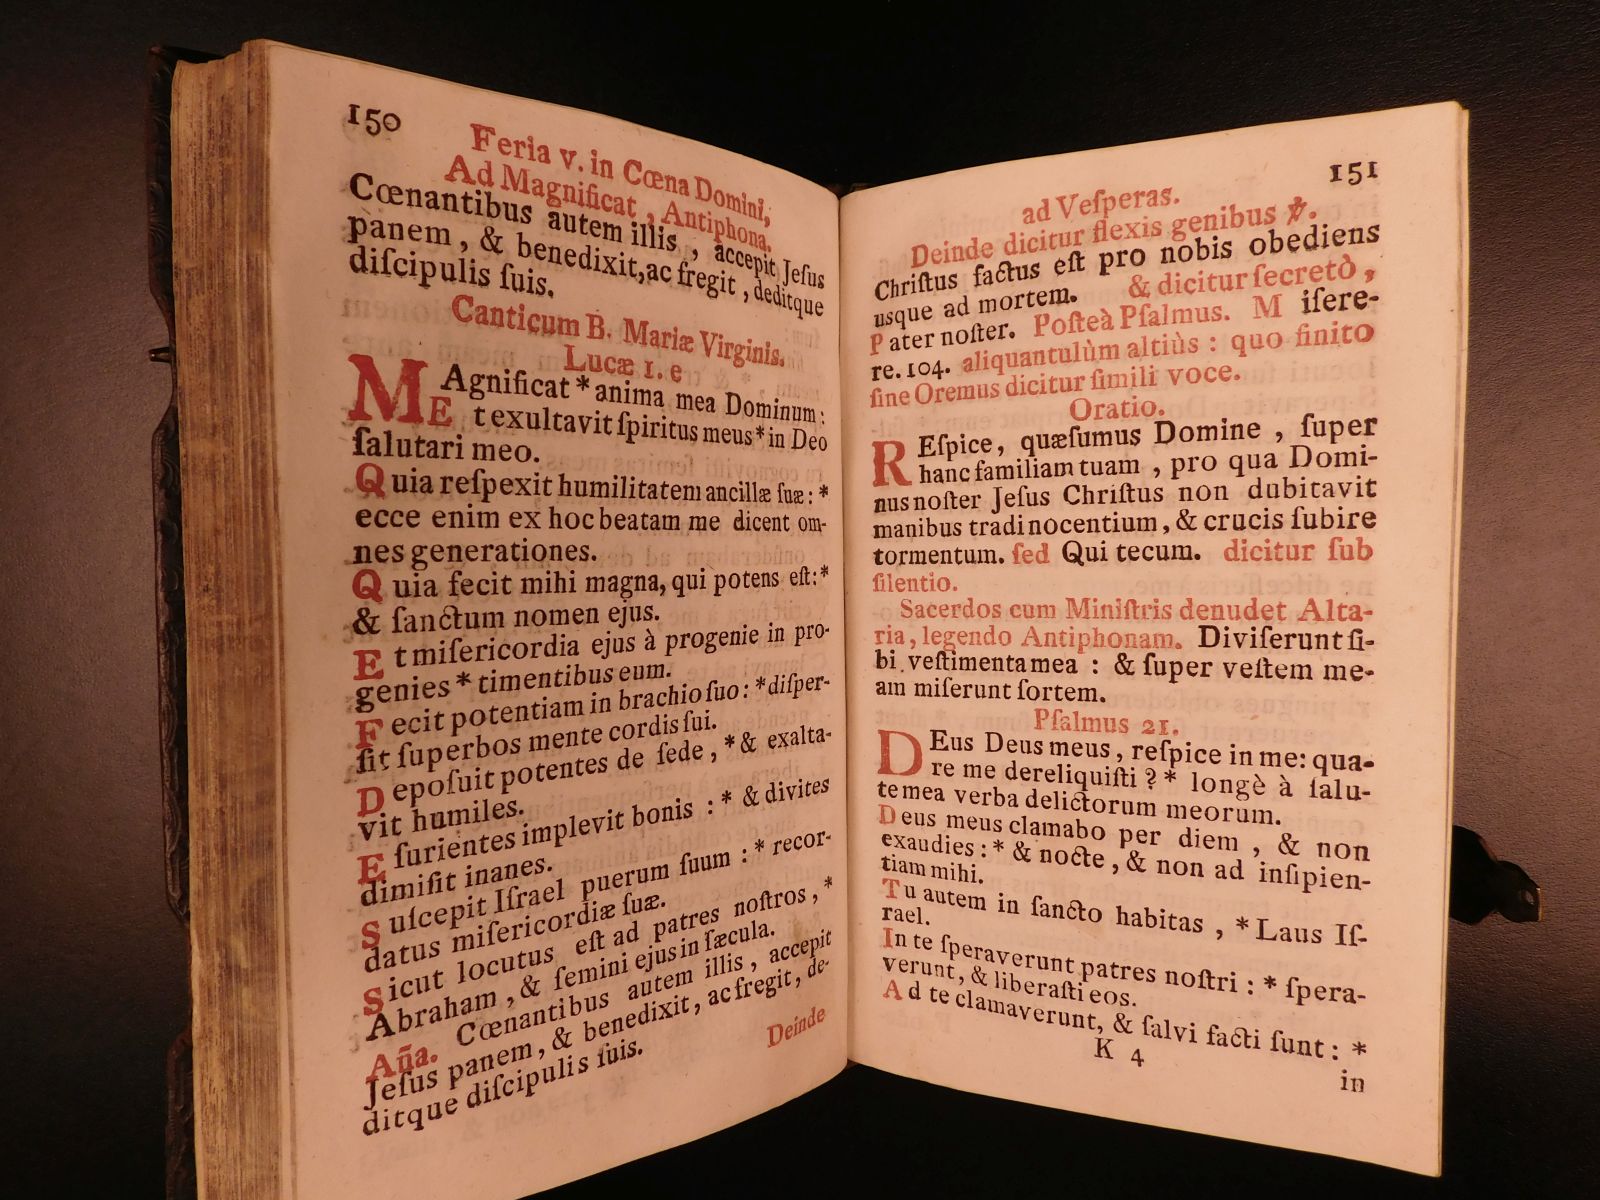 150
Feria v. in Cœna Domini,
Ad Magnificat, Antiphona.
Cœnantibus autem illis, accepit Jeſus
panem, & benedixit, ac fregit, deditque
diſcipulis ſuis.
Canticum B. Mariæ Virginis.
Lucæ 1. e
MAgnificat * anima mea Dominum:
Et exultavit ſpiritus meus * in Deo
ſalutari meo.
Quia reſpexit humilitatem ancillæ ſuæ: *
ecce enim ex hoc beatam me dicent om-
nes generationes.
Quia fecit mihi magna, qui potens eſt: *
& ſanctum nomen ejus.
Et miſericordia ejus à progenie in pro-
genies * timentibus eum.
Fecit potentiam in brachio ſuo: * diſper-
ſit ſuperbos mente cordis ſui.
Depoſuit potentes de ſede, * & exalta-
vit humiles.
Eſurientes implevit bonis : * & divites
dimiſit inanes.
Suſcepit Iſrael puerum ſuum : * recor-
datus miſericordiæ ſuæ.
Sicut locutus eſt ad patres noſtros, *
Abraham, & ſemini ejus in ſæcula.
Aña. Cœnantibus autem illis, accepit
Jeſus panem, & benedixit, ac fregit, de-
ditque diſcipulis ſuis.
Deinde
151
ad Veſperas.
Deinde dicitur flexis genibus ℣.
Chriſtus factus eſt pro nobis obediens
usque ad mortem. & dicitur ſecretò,
Pater noſter. Poſteà Pſalmus. Miſere-
re. 104. aliquantulùm altiùs : quo finito
ſine Oremus dicitur ſimili voce.
Oratio.
REſpice, quæſumus Domine, ſuper
hanc familiam tuam, pro qua Domi-
nus noſter Jeſus Chriſtus non dubitavit
manibus tradi nocentium, & crucis ſubire
tormentum. ſed Qui tecum. dicitur ſub
ſilentio.
Sacerdos cum Miniſtris denudet Alta-
ria, legendo Antiphonam. Diviſerunt ſi-
bi veſtimenta mea : & ſuper veſtem me-
am miſerunt ſortem.
Pſalmus 21.
DEus Deus meus, reſpice in me: qua-
re me dereliquiſti ? * longè à ſalu-
te mea verba delictorum meorum.
Deus meus clamabo per diem, & non
exaudies : * & nocte, & non ad inſipien-
tiam mihi.
Tu autem in ſancto habitas, * Laus Iſ-
rael.
In te ſperaverunt patres noſtri : * ſpera-
verunt, & liberaſti eos.
Ad te clamaverunt, & ſalvi facti ſunt : *
K 4
in